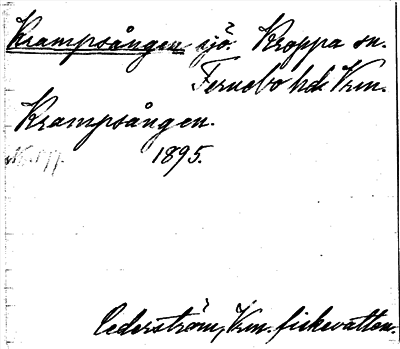 Krampsången, sjö. Kroppa sn.
Fernebo hd. Vrm.
Krampsången.
1895.
Cederström, Vrm. fiskevatten.